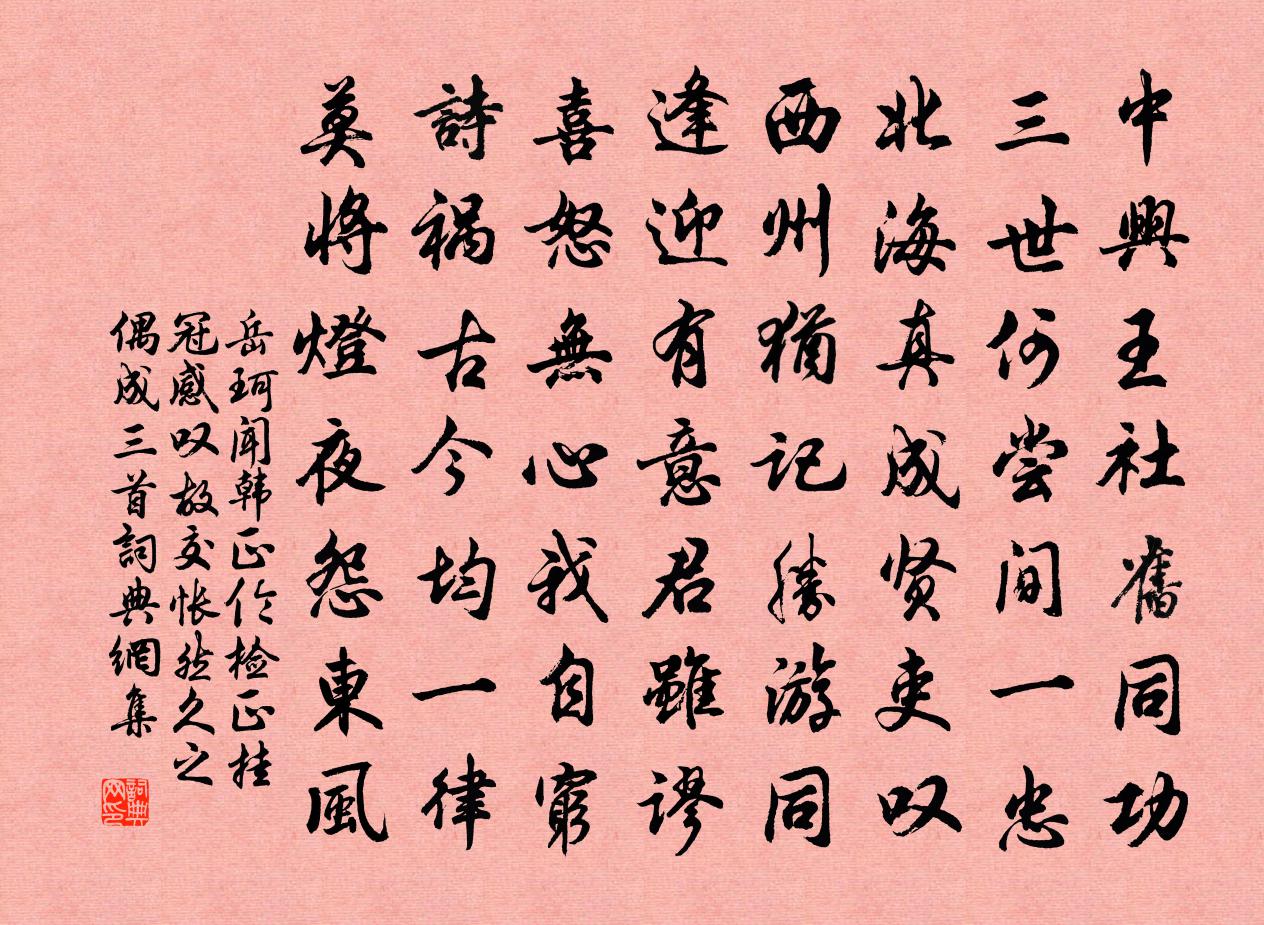 中興王社舊同功
三世何尝间一忠
北海真成贤吏叹
西州猶记勝游同
逢迎有意君雖谬
喜怒無心我自窮
詩祸古今均一律
莫将燈夜怨東風
岳珂闻韩正伦检正挂
冠感叹故交怅然久之
偶成三首詞典網集
詞典
网印